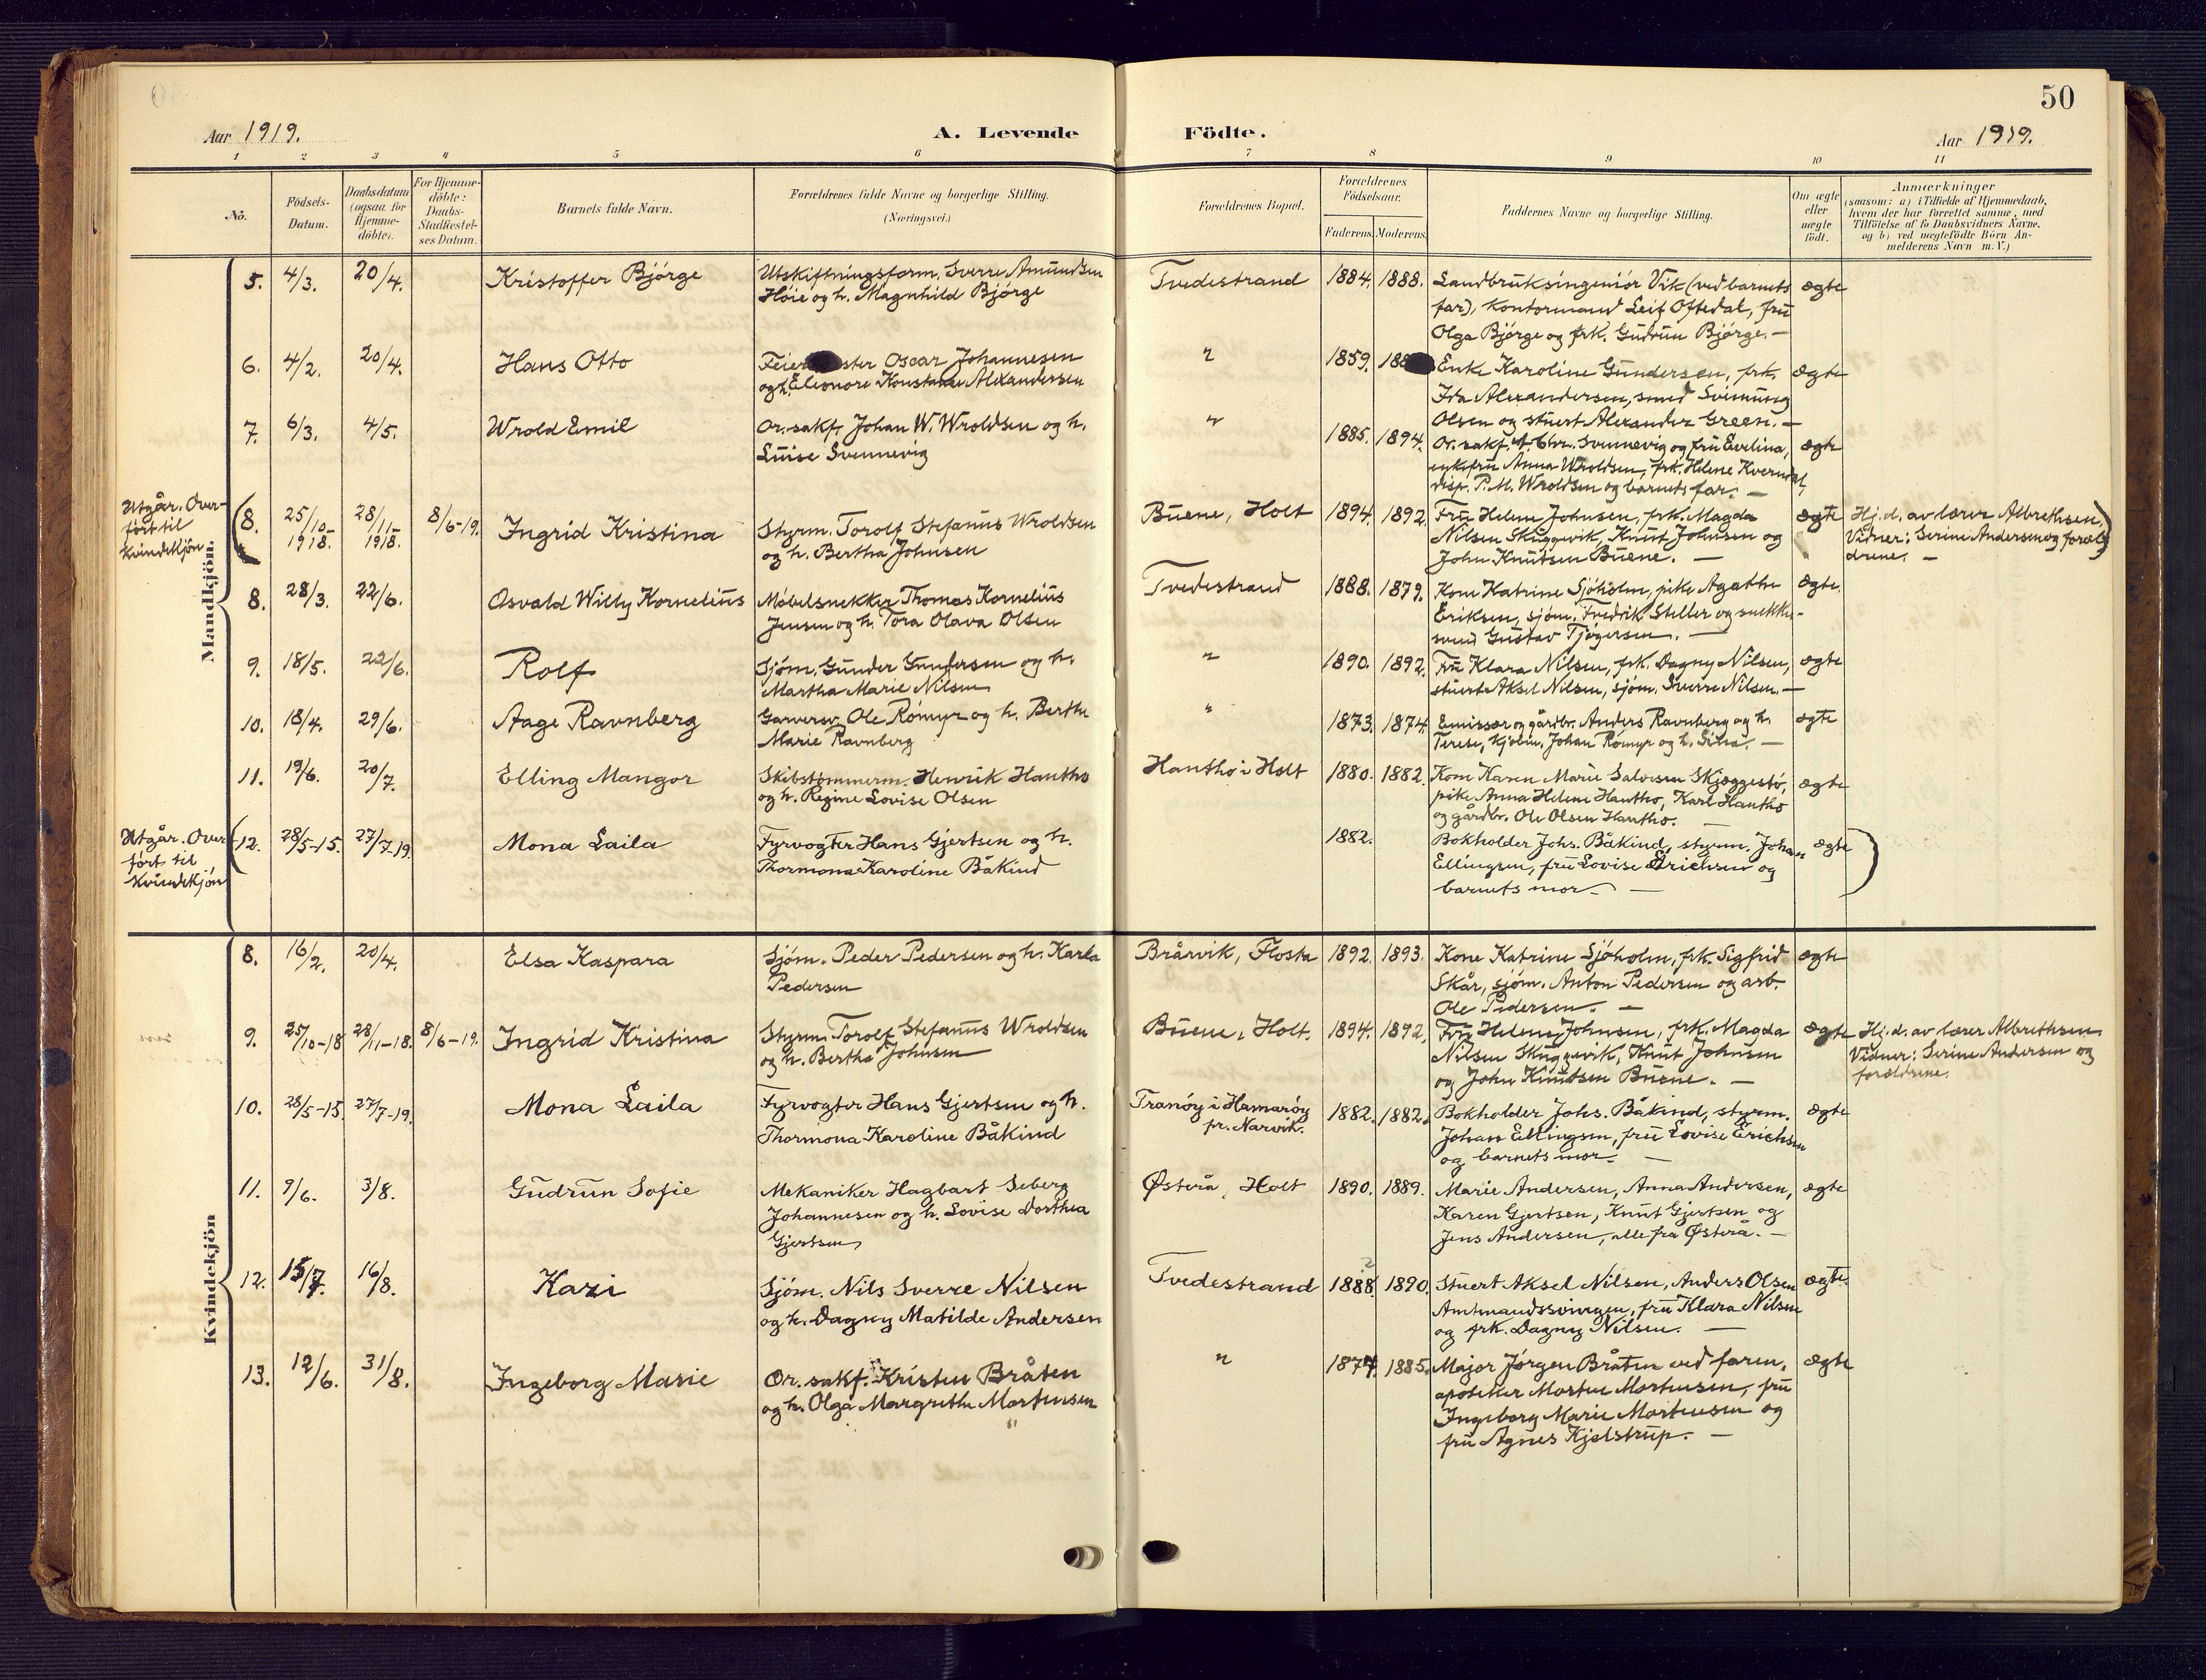 50
Aar 1919. A. Levende Födte. Aar 1919.
1 2 3 4 5 6 7 8 9 10 11
No.
Födsels-
Datum.
Daabsdatum
(ogsaa for
Hjemme-
döbte).
For Hjemme-
döbte:
Daabs-
Stadfæstel-
ses Datum.
Barnets fulde Navn.
Forældrenes fulde Navne og borgerlige Stilling.
(Næringsvei.)
Forældrenes Bopæl.
Forældrenes
Födselsaar.
Faderens. Moderens.
Faddernes Navne og borgerlige Stilling.
Om ægte
eller
uægte
födt.
Anmærkninger
(saasom: a) i Tilfælde af Hjemmedaab,
hvem der har forrettet samme, med
Tilföielse af to Daabsvidners Navne,
og b) ved uægtefödte Börn An-
melderens Navn m. V.)
Mandkjön.
5. 4/3. 20/4. Kristoffer Bjórge
Utskiftningsform. Sverre Amundsen
Hóie og h. Magnhild Bjórge
Tvedestrand 1884. 1888.
Landbruksingeniór Vik (ved barnets
far), kontormand Leif Oftedal, frü
Olga Bjórge og frk. Gudrun Bjórge. —
ægte
6. 4/2. 20/4. Hans Otto
Feier ster Oscar Johannesen
og h. Eleonore Konstanse Alexandersen
" 1859. 188
Enke Karoline Gundersen, frk.
Ida Alexandersen, smed Svinung
Olsen og stuert Alexander Green. —
ægte
7. 6/3. 4/5. Wrold Emil
Or. sakf. Johan W. Wroldsen og h.
Luise Svennevig
" 1885. 1894.
Or. sakf. Chr. Svennevig og fru Evelina,
enkefru Anna Wroldsen, frk. Helene Kverndal,
disp. P. M. Wroldsen og barnets far. —
ægte
Utgår. Over-
fórt til
kvindekjón.
8. 25/10-1918. 28/11-1918. 8/6-19. Ingrid Kristina
Styrm. Torolf Stefanus Wroldsen
og h. Bertha Johnsen
Buene, Holt 1894. 1892.
Fru Helene Johnsen, frk. Magda
Nilsen Skuggevik, Knut Johnsen og
John Knutsen Buene. —
ægte
Hj. d. av lærer Albrethsen,
Vidner: Serine Andersen og foræl-
drene. —
8. 28/3. 22/6. Osvald Willy Kornelius
Móbelsnekker Thomas Kornelius
Jensen og h. Tora Olava Olsen
Tvedestrand 1888. 1879.
Kone Katrine Sjóholm, pike Agathe
Eriksen, sjóm. Fredrik Steller og snekker-
svend Gustav Tjógersen. —
ægte.
9. 18/5. 22/6. Rolf
Sjóm. Gunder Gundersen og h.
Martha Marie Nilsen
" 1890. 1892.
Fru Klara Nilsen, frk. Dagny Nilsen,
stuert Aksel Nilsen, sjóm. Sverre Nilsen. —
ægte
10. 18/4. 29/6. Aage Ravnberg
Garversv. Ole Rómyr og h. Berthe
Marie Ravnberg
" 1873. 1874.
Emissær og gårdbr. Anders Ravnberg og h.
Terese, kjóbm. Johan Rómyr og h. Silva. —
ægte
11. 19/6. 20/7. Elling Mangor
Skibstómmerm. Henrik Hantho
og h. Regine Lovise Olsen
Hantho i Holt 1880. 1882.
Kone Karen Marie Salvesen Skjæggestó,
pike Anna Helene Hantho, Karl Hantho
og gårdbr. Ole Olsen Hantho. —
ægte
Utgår. Over
fórt til
kvindekjón
12. 28/5-15. 27/7-19. Mona Laila
Fyrvogter Hans Gjertsen og h.
Thormona Karoline Båkind
1882.
Bokholder Johs. Båkind, styrm. Johan
Ellingsen, fru Lovise Erichsen og
barnets mor. —
ægte
Kvindekjön
8. 16/2. 20/4. Elsa Kaspara
Sjóm. Peder Pedersen og h. Karla
Pedersen
Brårvik, Flosta 1892. 1893.
Kone Katrine Sjóholm, frk. Sigfrid
Skår, sjóm. Anton Pedersen og arb.
Ole Pedersen. —
ægte
9. 25/10-18 28/11-18. 8/6-19. Ingrid Kristina
Styrm. Torolf Stefanus Wroldsen
og h. Bertha Johnsen
Buene, Holt. 1894. 1892.
Fru Helene Johnsen, frk. Magda
Nilsen Skuggevik, Knut Johnsen
og John Knutsen Buene. —
ægte
Hj. d. av lærer Albrethsen.
Vidner: Serine Andersen og
forældrene.
10. 28/5-15. 27/7-19. Mona Laila
Fyrvogter Hans Gjertsen og h.
Thormona Karoline Båkind
Tranóy i Hamaróy
pr. Narvik.
1882. 1882.
Bokholder Johs. Båkind, styrm.
Johan Ellingsen, fru Lovise Erichsen
og barnets mor. —
ægte
11. 9/6. 3/8. Gudrun Sofie
Mekaniker Hagbart Seberg
Johannesen og h. Lovise Dorthea
Gjertsen
Østerå, Holt 1890. 1889.
Marie Andersen, Anna Andersen,
Karen Gjertsen, Knut Gjertsen og
Jens Andersen, alle fra Østerå. —
ægte
12. 15/7. 16/8. Kari
Sjóm. Nils Sverre Nilsen
og h. Dagny Matilde Andersen
Tvedestrand 1888. 1890.
Stuert Aksel Nilsen, Anders Olsen
Amtmandssvingen, fru Klara Nilsen
og frk. Dagny Nilsen. —
ægte.
13. 12/6. 31/8. Ingeborg Marie
Or. sakf. Kristen Bråten
og h. Olga Margrethe Mortensen
" 1874. 1885.
Major Jórgen Bråten ved faren,
apoteker Morten Mortensen, fru
Ingeborg Marie Mortensen og
fru Agnes Kjelstrup. —
ægte